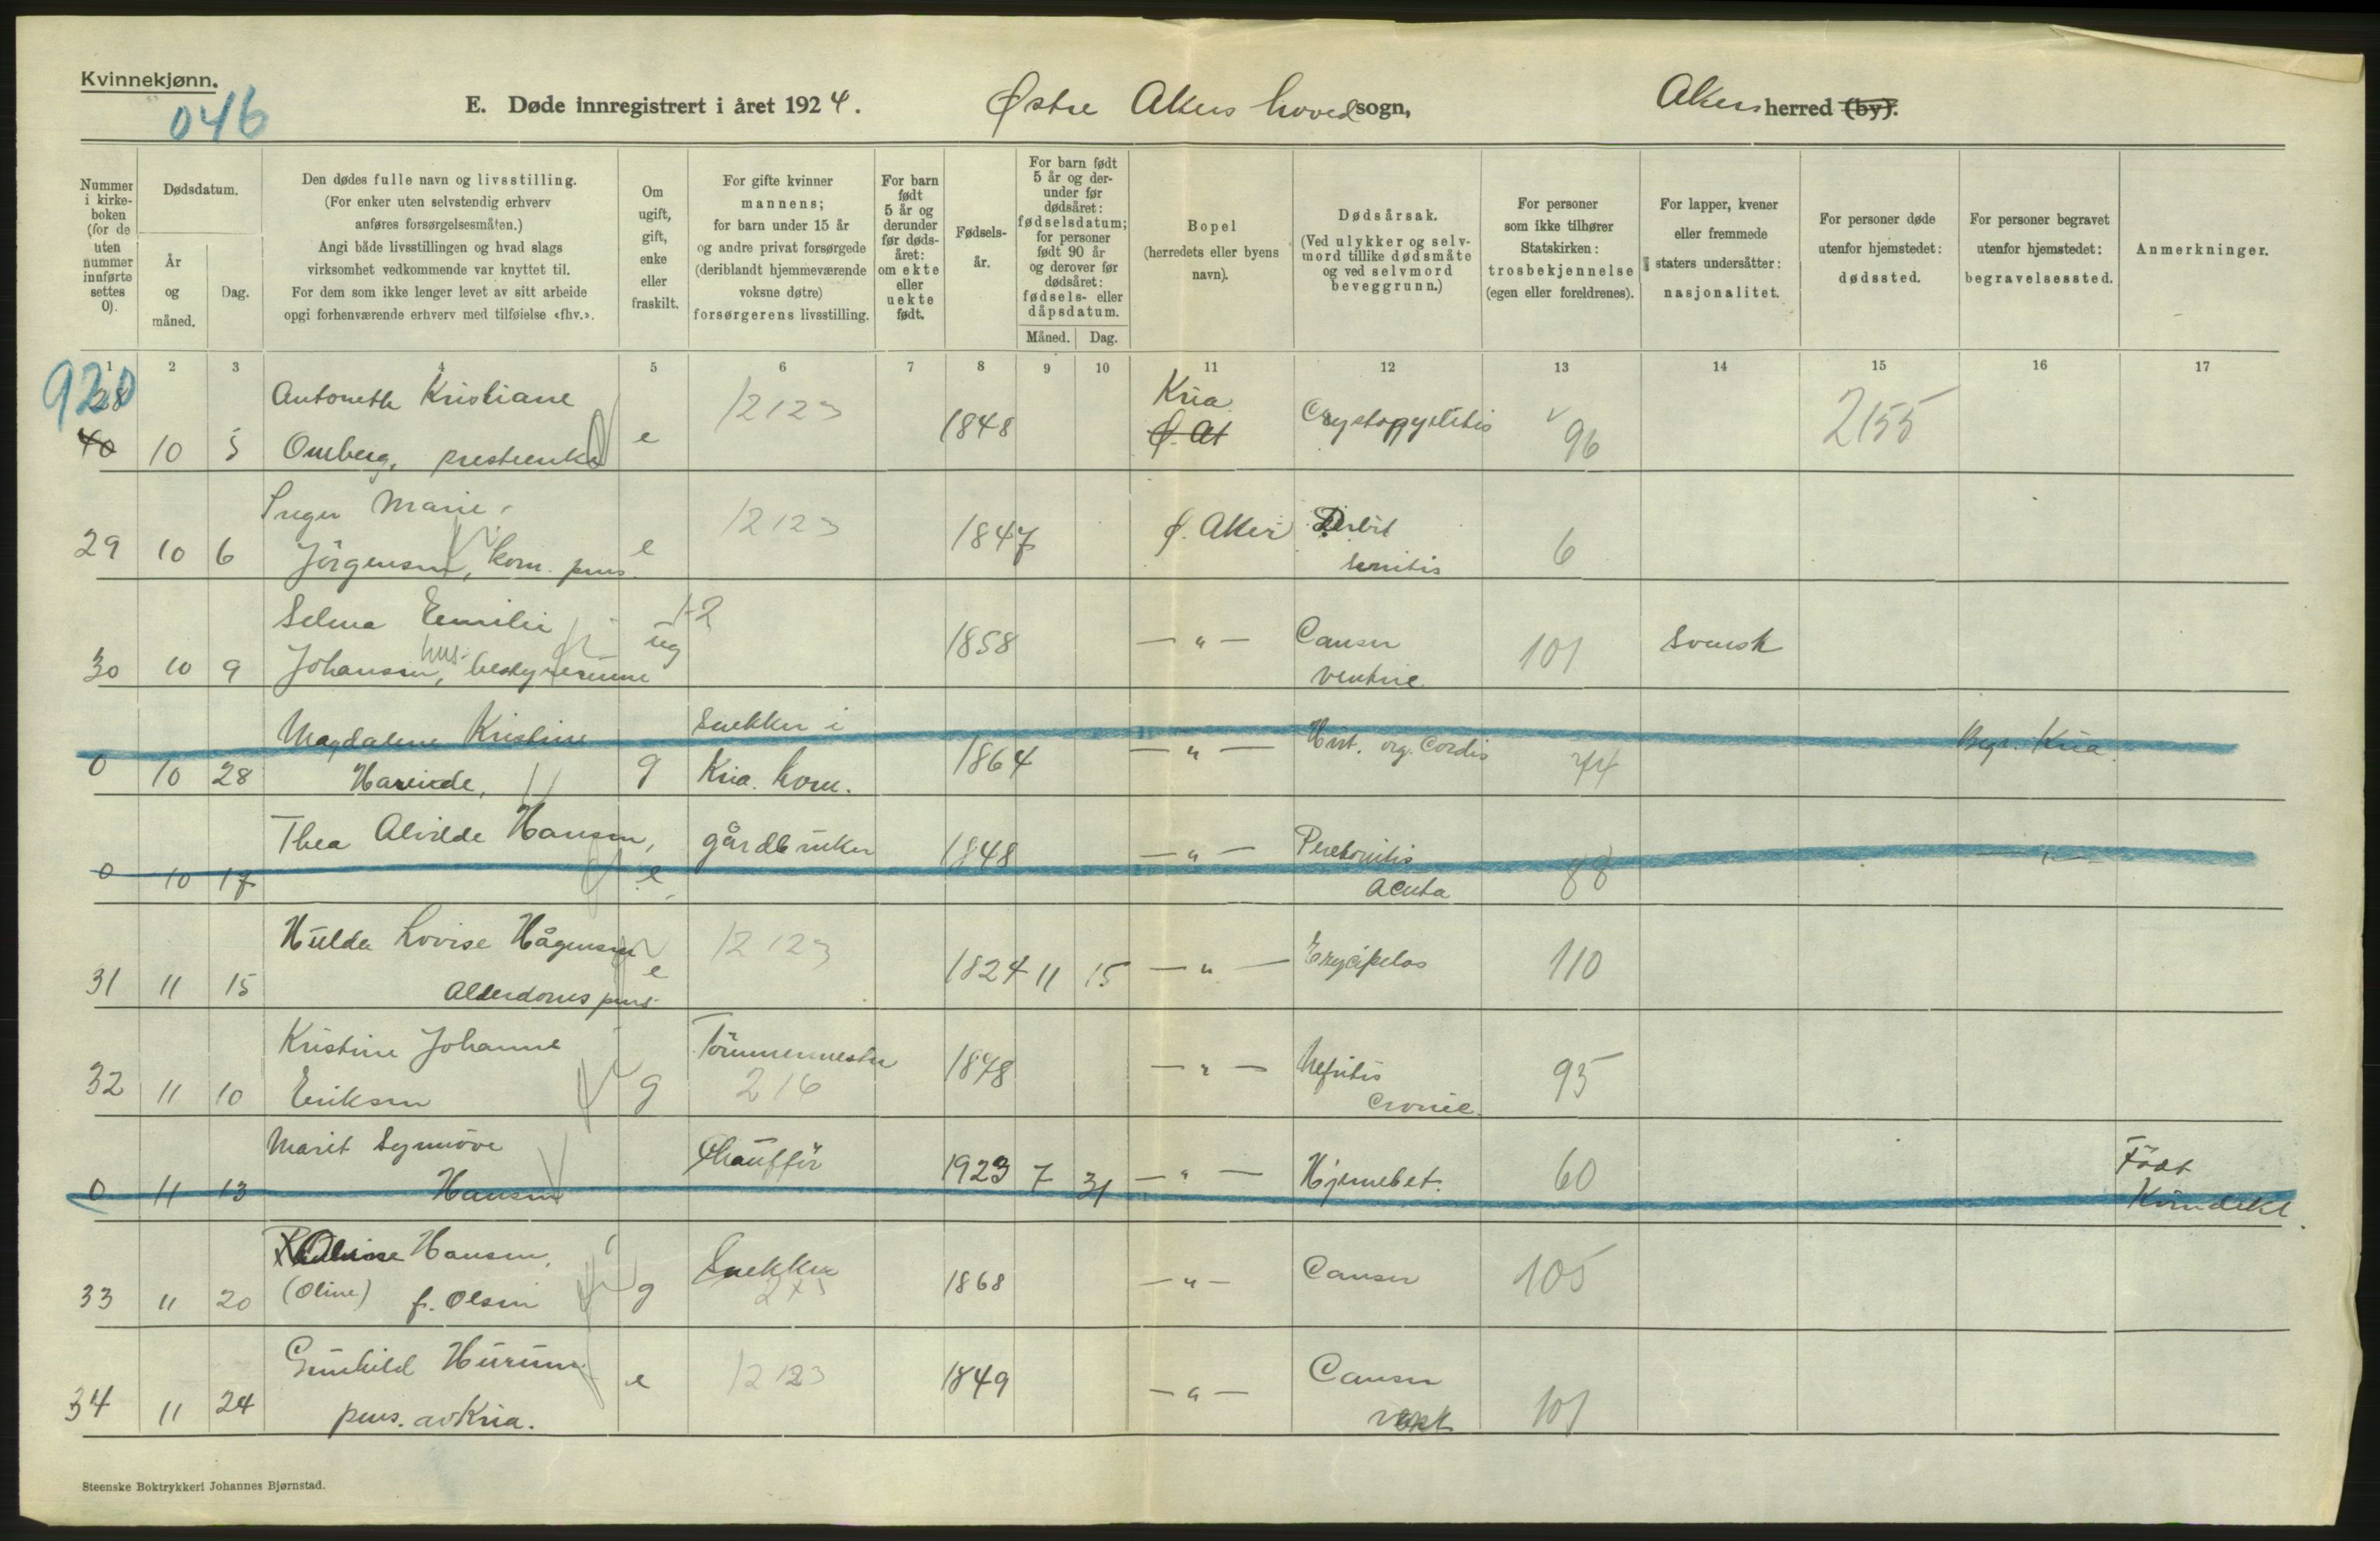 Kvinnekjønn.
046
E. Døde innregistrert i året 1924. Østre Akers hovedsogn, Akers herred (by).
Nummer i kirkeboken (for de uten nummer innførte settes 0).
Dødsdatum.
År og måned.
Dag.
Den dødes fulle navn og livsstilling.
(For enker uten selvstendig erhverv
anføres forsørgelsesmåten.)
Angi både livsstillingen og hvad slags
virksomhet vedkommende var knyttet til.
For dem som ikke lenger levet av sitt arbeide
opgi forhenværende erhverv med tilføielse «fhv.».
Om ugift, gift, enke eller fraskilt.
For gifte kvinner
mannens;
for barn under 15 år
og andre privat forsørgede
(deriblandt hjemmeværende
voksne døtre)
forsørgerens livsstilling.
For barn født 5 år og derunder før dødsåret: om ekte eller uekte født.
Fødselsår.
For barn født 5 år og derunder før dødsåret: fødselsdatum; for personer født 90 år og derover før dødsåret: fødsels- eller dåpsdatum.
Måned. Dag.
Bopel
(herredets eller byens
navn).
Dødsårsak.
(Ved ulykker og selv-
mord tillike dødsmåte
og ved selvmord
beveggrunn.)
For personer
som ikke tilhører
Statskirken:
trosbekjennelse
(egen eller foreldrenes).
For lapper, kvener
eller fremmede
staters undersåtter:
nasjonalitet.
For personer døde
utenfor hjemstedet:
dødssted.
For personer begravet
utenfor hjemstedet:
begravelsessted.
Anmerkninger.
1 2 3 4 5 6 7 8 9 10 11 12 13 14 15 16 17
920
28 Antonette Kristiane 12123 Kria
40 10 5 Omberg, presteenke e 1848 Ø. Ak 96 2155
Inger Marie 12123 Ø. Aker Debil
29 10 6 Jörgensen, kom. pens. e 1847 senitis 6
Selma Emilie 12
30 10 9 Johansen, hus-bestyrerinne ug 1858 — „ — Canser ventric. 101 Svensk
Magdalene Kristine Snekker i
0 10 28 g Kria. kom. 1864 — „ — org. Cordis 44 Begr. Kria.
Thea Alvilde Hansen, gårdbruker
0 10 17 e 1848 — „ — Peretonitis acuta 88 — „ —
Hulda Lovise Hågensen 12123
31 11 15 Alderdoms pens. e 1824 11 15 — „ — Erycipelas 110
Kristine Johanne Tömmermester
32 11 10 Eriksen g 216 1848 — „ — Nefritis cronic. 95
Marit Synnöve Chaufför
0 11 13 Hansen 1923 7 31 — „ — Hjernebet. 60 Födt Kvindekl.
Hansen, Snekker
33 11 20 (Oline) f. Olsen g 1868 — „ — Canser 105
Gunhild Hurum
34 11 24 pens. av Kria. e 12123 1849 — „ — Canser 101
Steenske Boktrykkeri Johannes Bjørnstad.